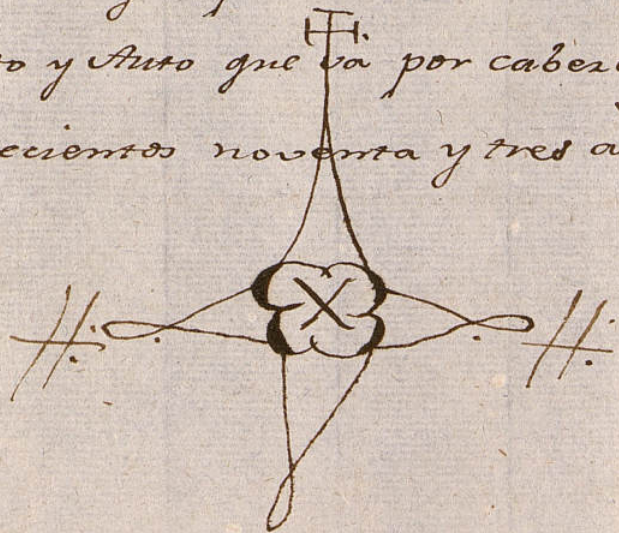 to y Auto que va por cabez
ecientos noventa y tres a
X